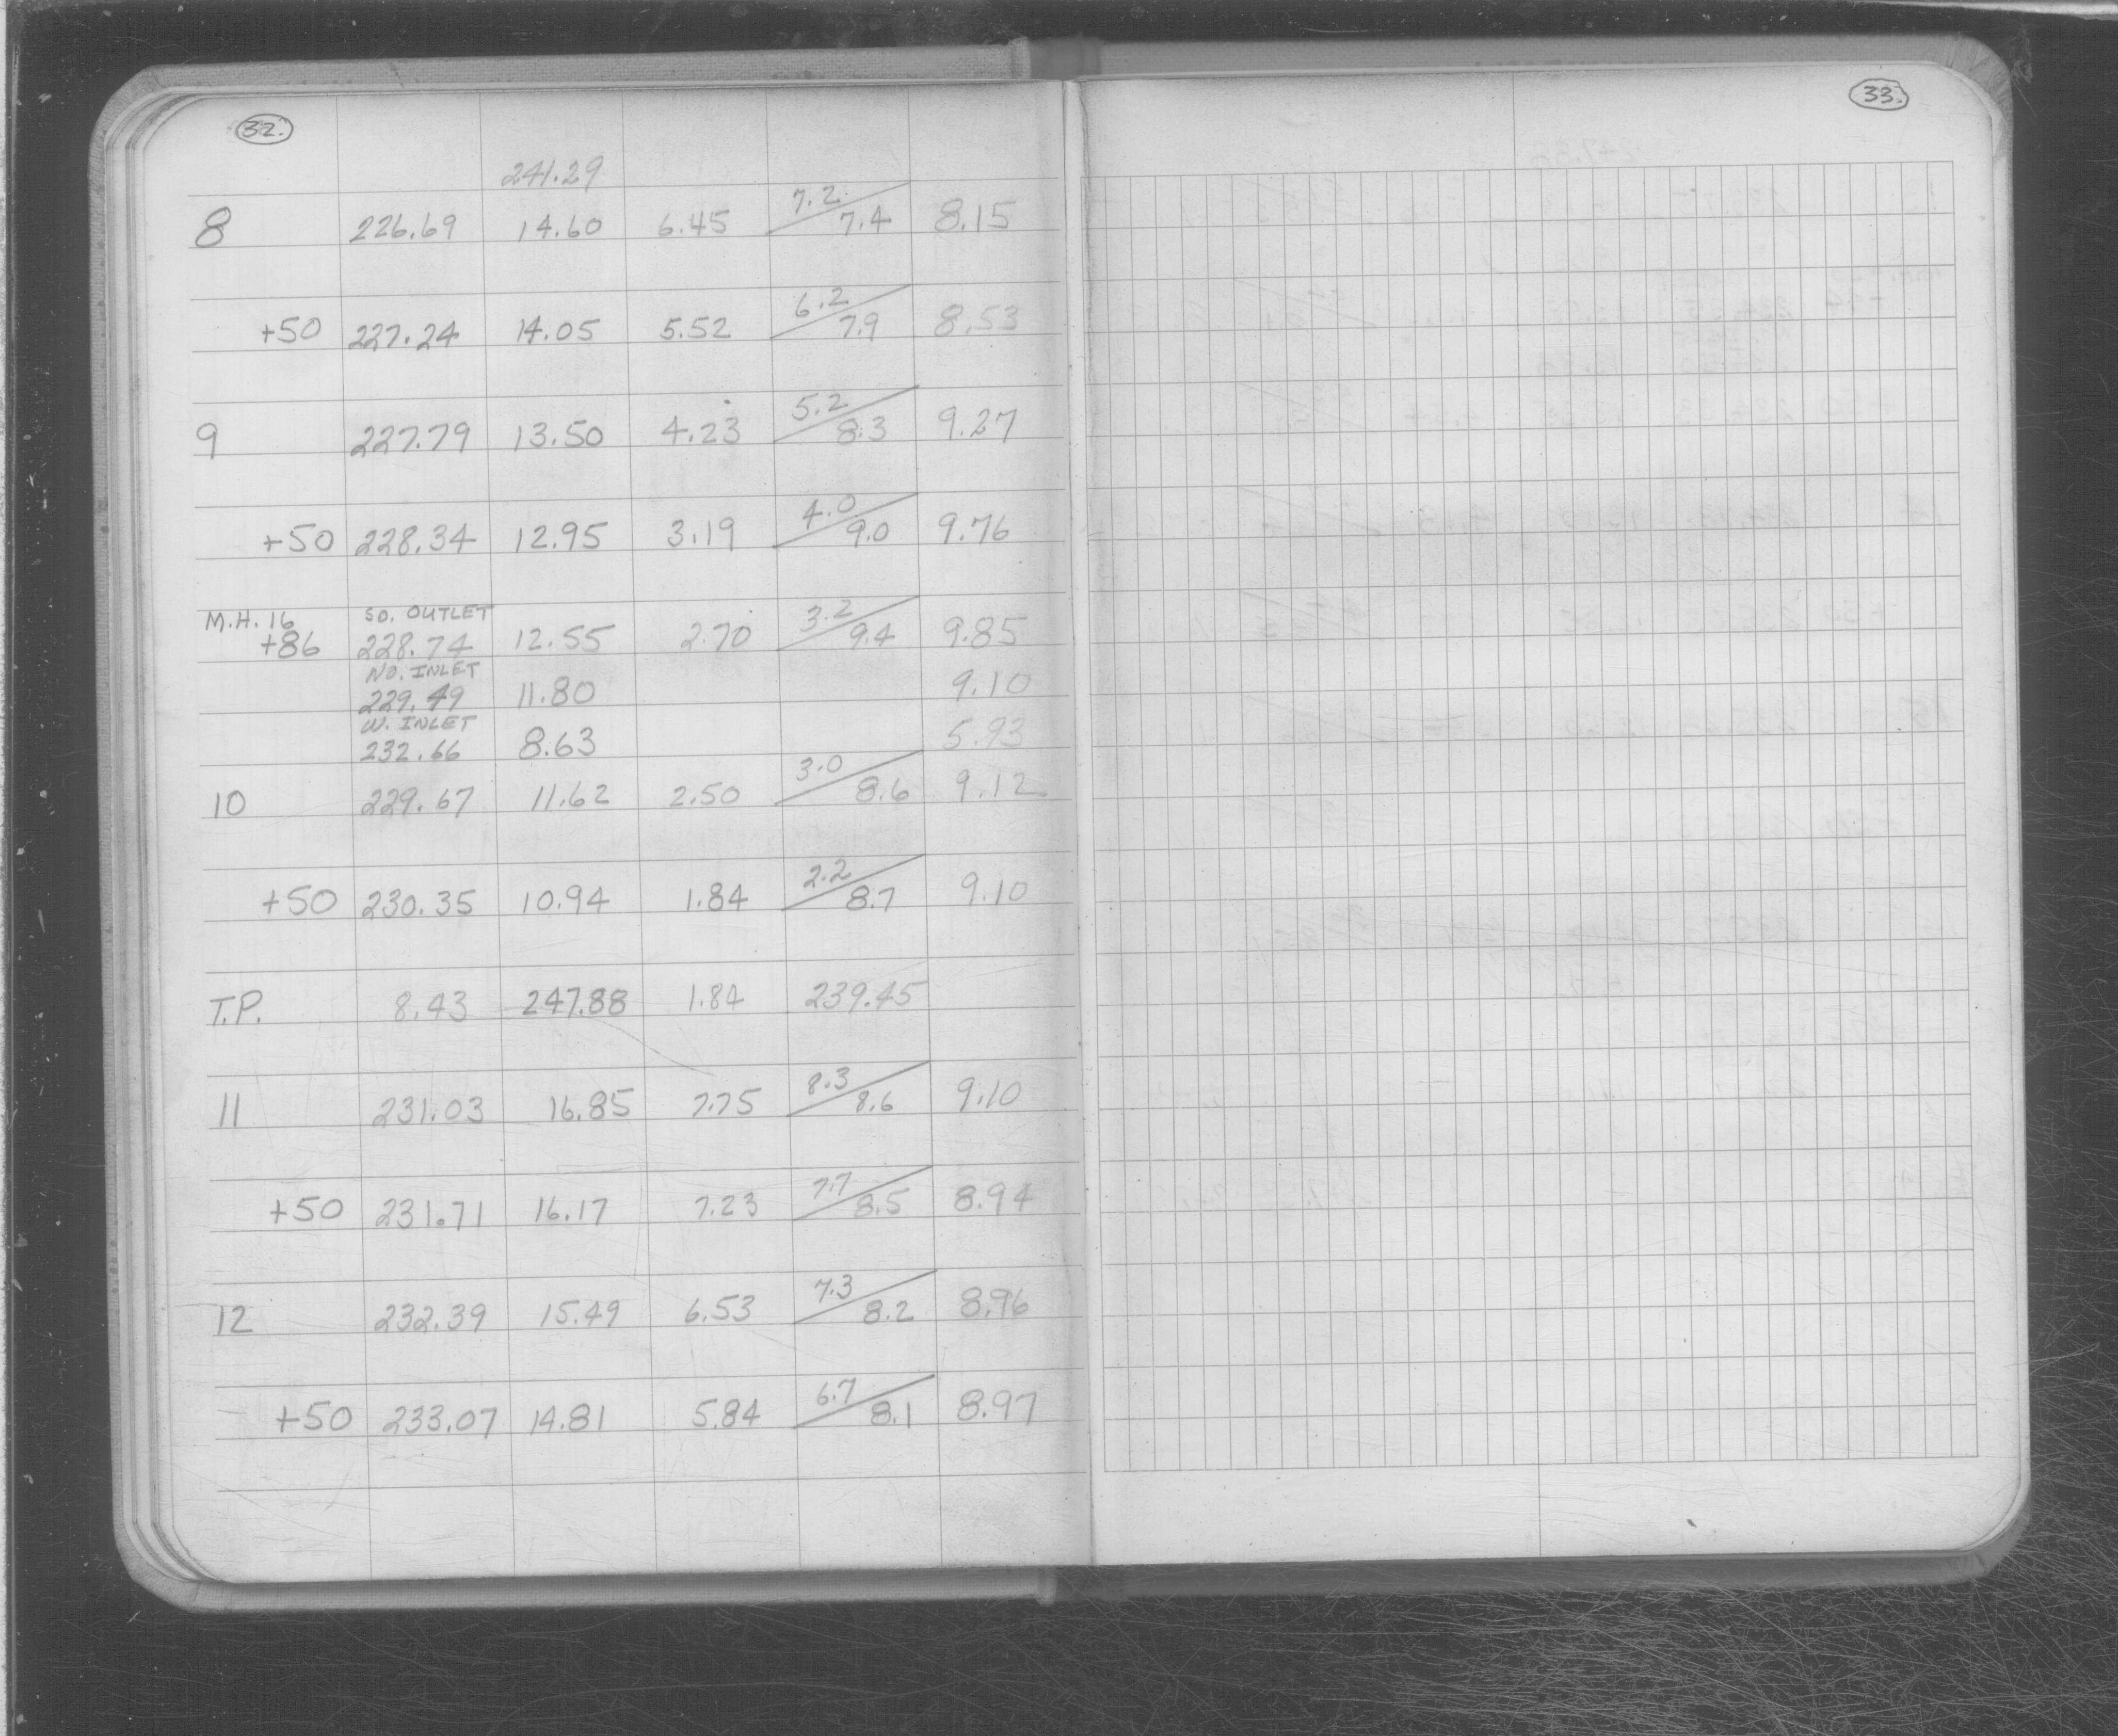 32.
33.
241.29
8 226.69 14.60 6.45 7.2/7.4 8.15
+50 227.24 14.05 5.52 6.2/7.9 8.53
9 227.79 13.50 4.23 5.2/8.3 9.27
+50 228.34 12.95 3.19 4.0/9.0 9.76
M.H. 16 SO. OUTLET
+86 228.74 12.55 2.70 3.2/9.4 9.85
NO. INLET
229.49 11.80 9.10
W. INLET
232.66 8.63 5.93
10 229.67 11.62 2.50 3.0/8.6 9.12
+50 230.35 10.94 1.84 2.2/8.7 9.10
T.P. 8.43 247.88 1.84 239.45
11 231.03 16.85 7.75 8.3/8.6 9.10
+50 231.71 16.17 7.23 7.7/8.5 8.94
12 232.39 15.49 6.53 7.3/8.2 8.96
+50 233.07 14.81 5.84 6.7/8.1 8.97